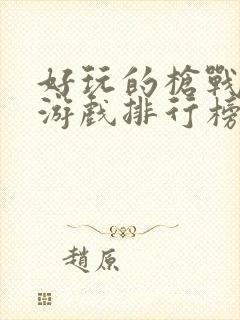 好玩的槍戰
游戲排行榜
趙原